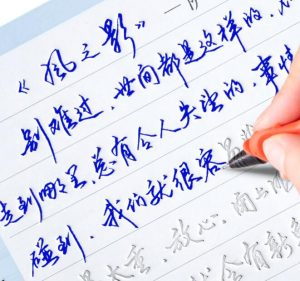 《風之影》
别难过，世间都是这样的，
走到哪里，总有令人失望的，事情
碰到，我们就很容
放心，闭上眼